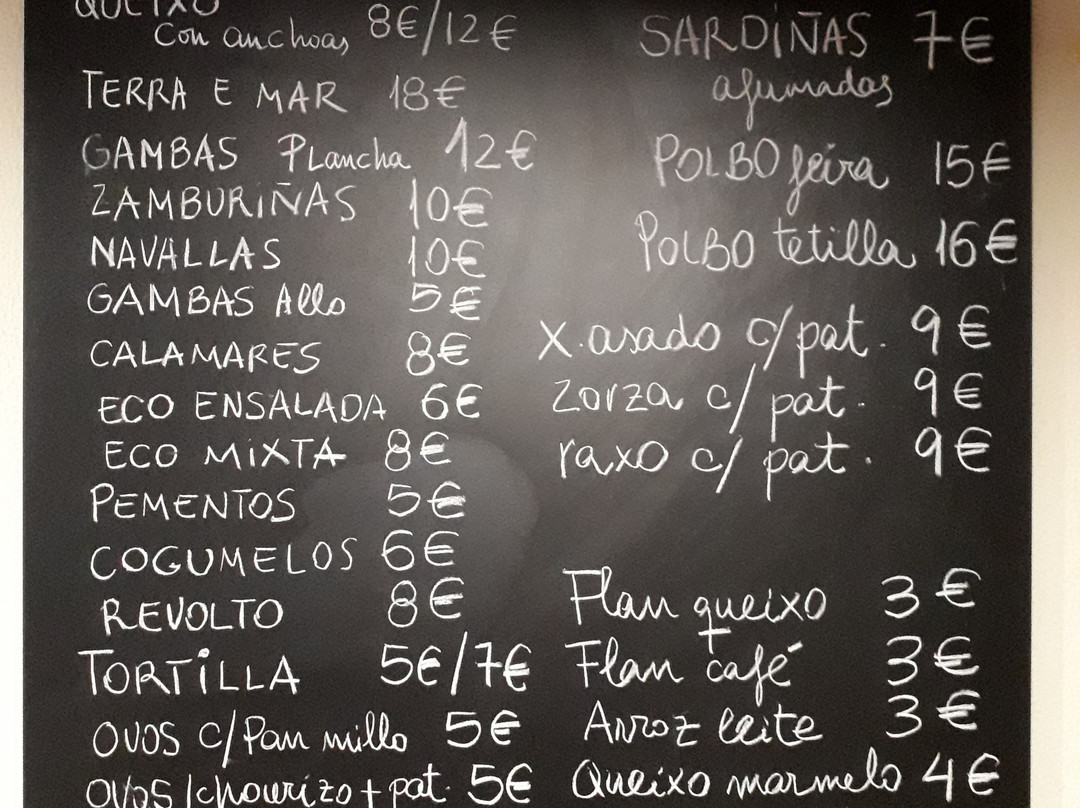 QUEIXO
Con anchoas 8€/12€
TERRA E MAR 18€
GAMBAS PLancha 12€
ZAMBURIÑAS 10€
NAVALLAS 10€
GAMBAS Allo 5€
CALAMARES 8€
ECO ENSALADA 6€
ECO MIXTA 8€
PEMENTOS 5€
COGUMELOS 6€
REVOLTO 8€
TORTILLA 5€/7€
OVOS c/Pan millo 5€
OVOS/chourizo+pat. 5€
SARDIÑAS 7€
afumadas
POLBO feira 15€
POLBO tetilla 16€
X.asado c/pat. 9€
zorza c/pat. 9€
raxo c/pat. 9€
Flan queixo 3€
Flan café 3€
Arroz leite 3€
Queixo marmelo 4€